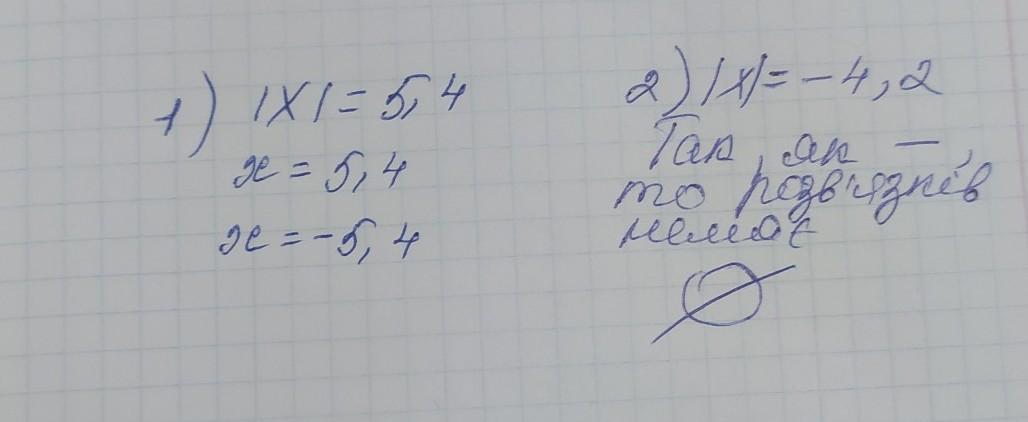 1) |x| = 5,4
x = 5,4
x = -5,4
2) |x| = -4,2
Так як —,
то розв'язків
немає
∅